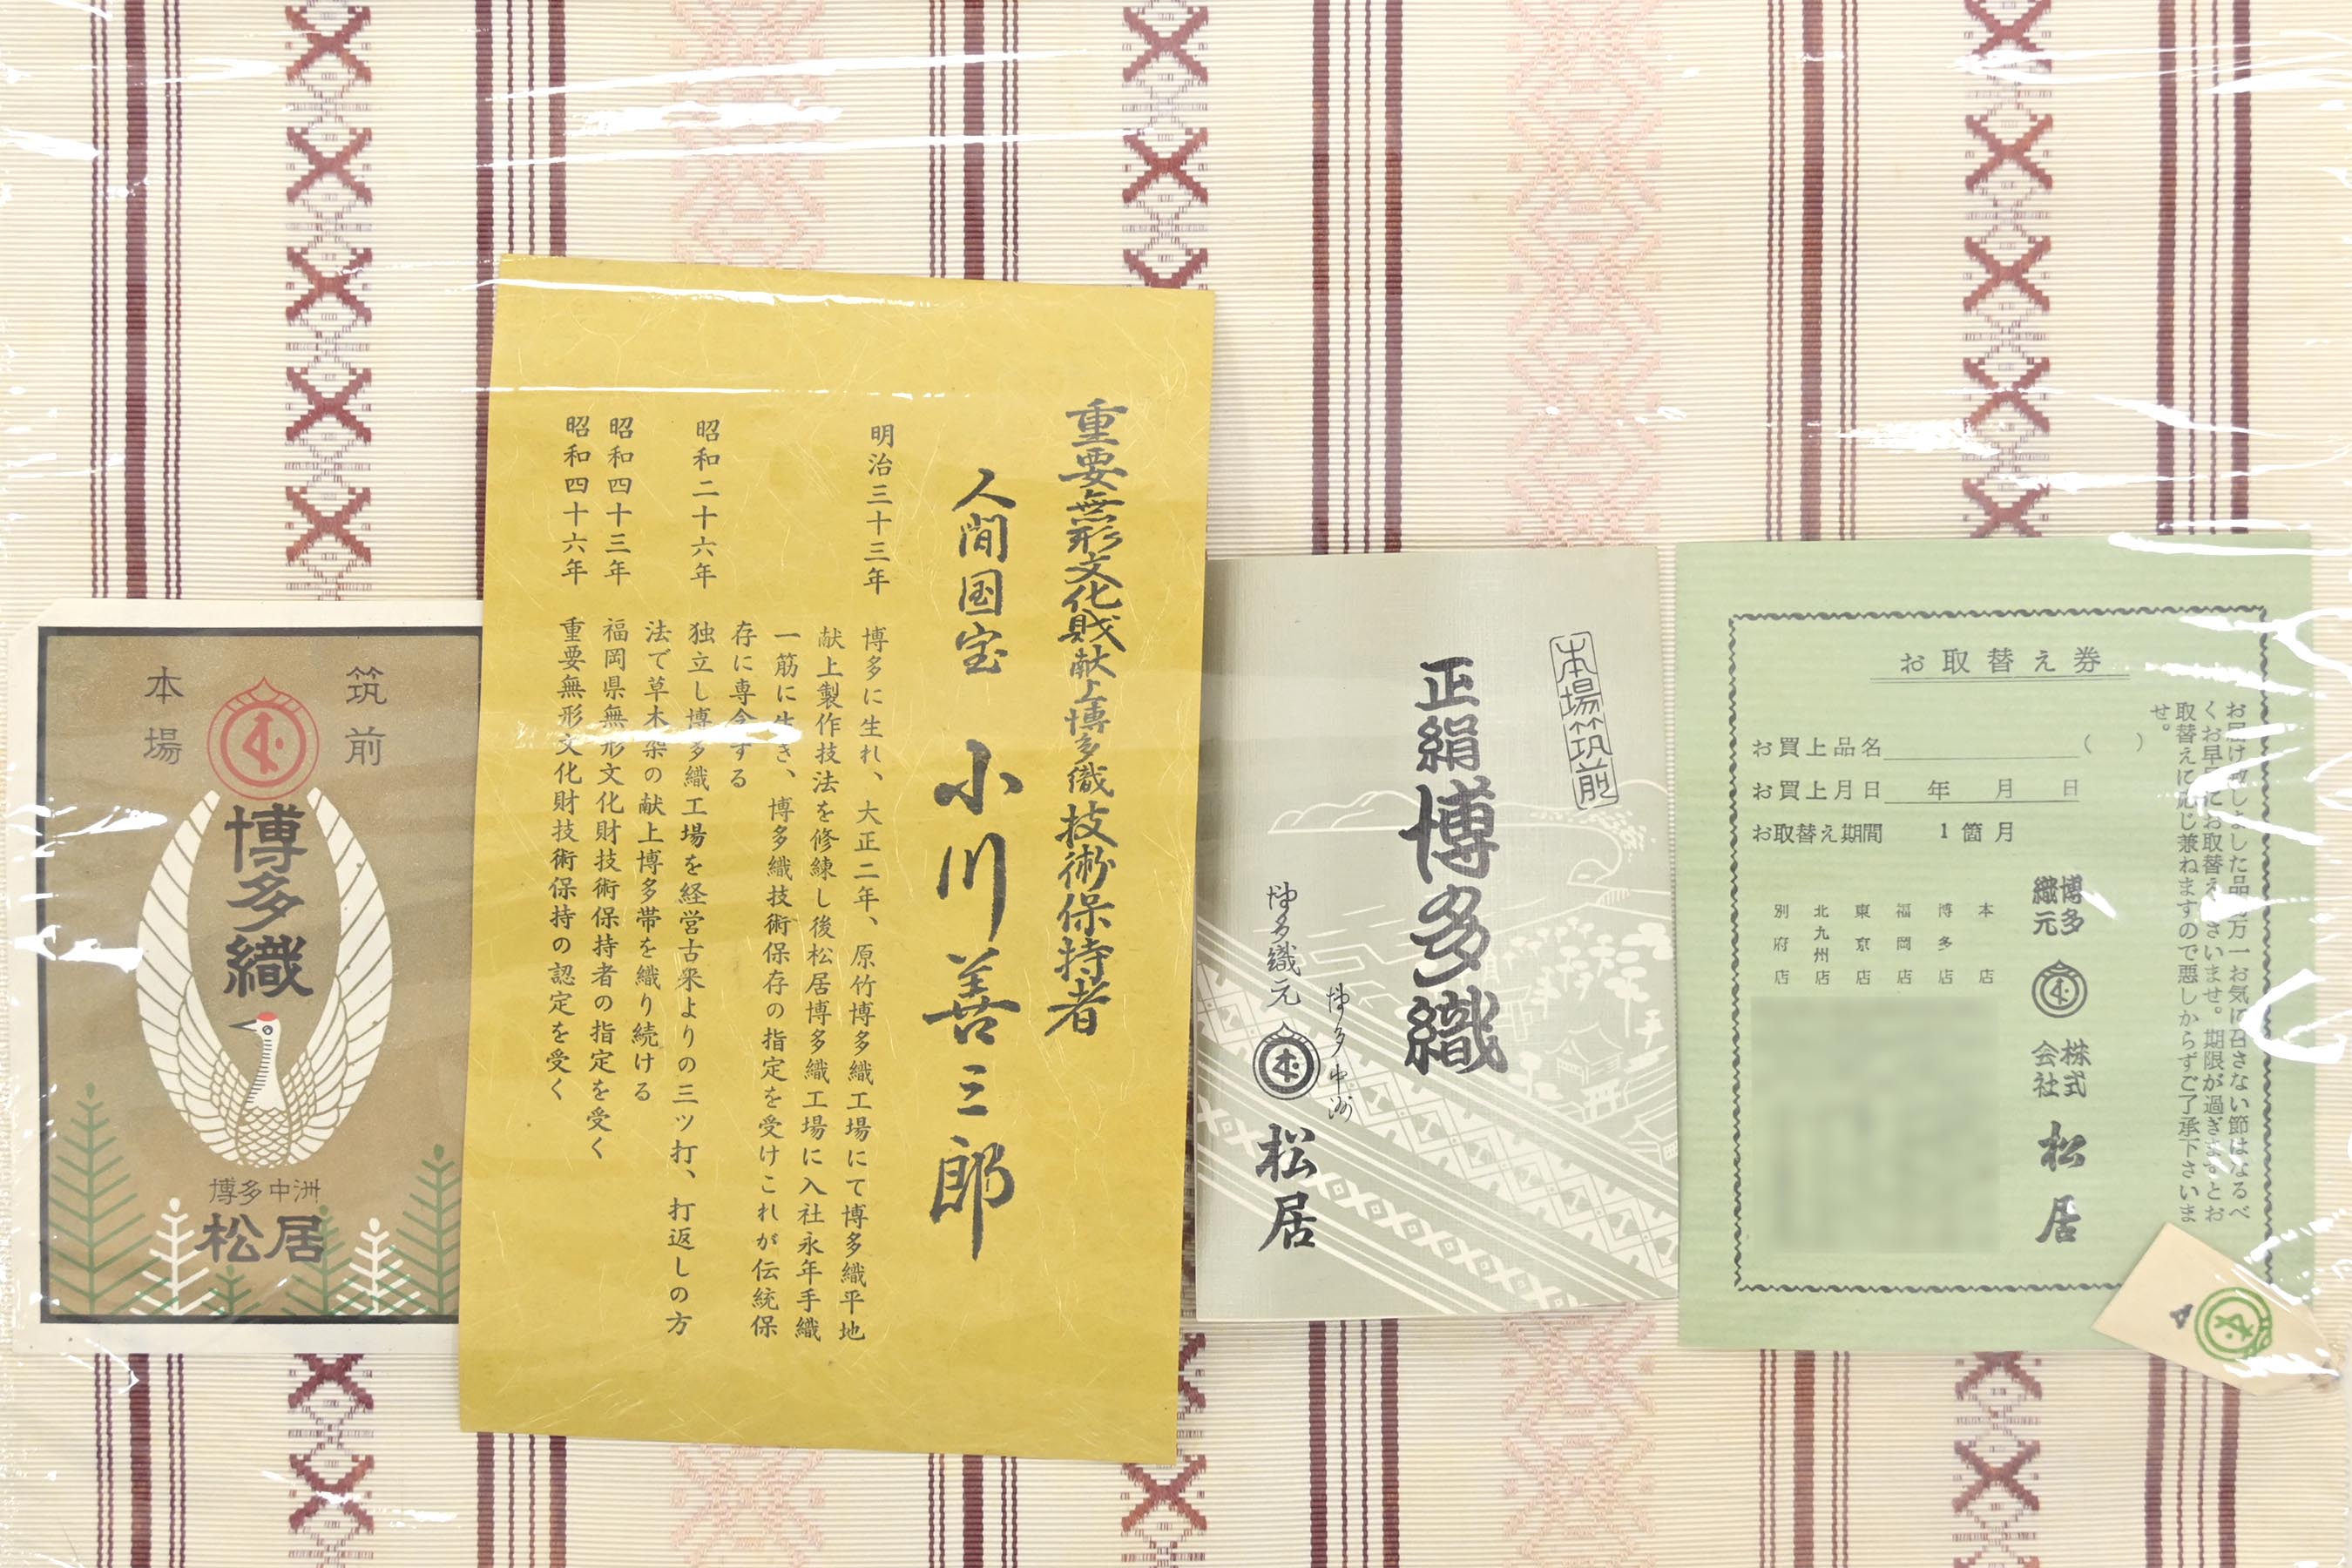 筑前
本場
博多織
博多中洲
松居
重要無形文化財献上博多織技術保持者
人間国宝 小川善三郎
明治三十三年 博多に生れ、大正二年、原竹博多織工場にて博多織平地
献上製作技法を修練し後松居博多織工場に入社永年手織
一筋に生き、博多織技術保存の指定を受けこれが伝統保
存に専念する
昭和二十六年 独立し博多織工場を経営古来よりの三ツ打、打返しの方
法で草木染の献上博多帯を織り続ける
昭和四十三年 福岡県無形文化財技術保持者の指定を受く
昭和四十六年 重要無形文化財技術保持の認定を受く
本場筑前
正絹博多織
博多中洲
博多織元 松居
お取替え券
お届け致しました品、万一お気に召さない節はなるべ
くお早目にお取替え下さいませ。期限が過ぎますとお
取替えに応じ兼ねますので悪しからずご了承下さいま
せ。
お買上品名 ( )
お買上月日 年 月 日
お取替え期間 1箇月
博多織元 株式会社 松居
本店
博多店
福岡店
東京店
北九州店
別府店